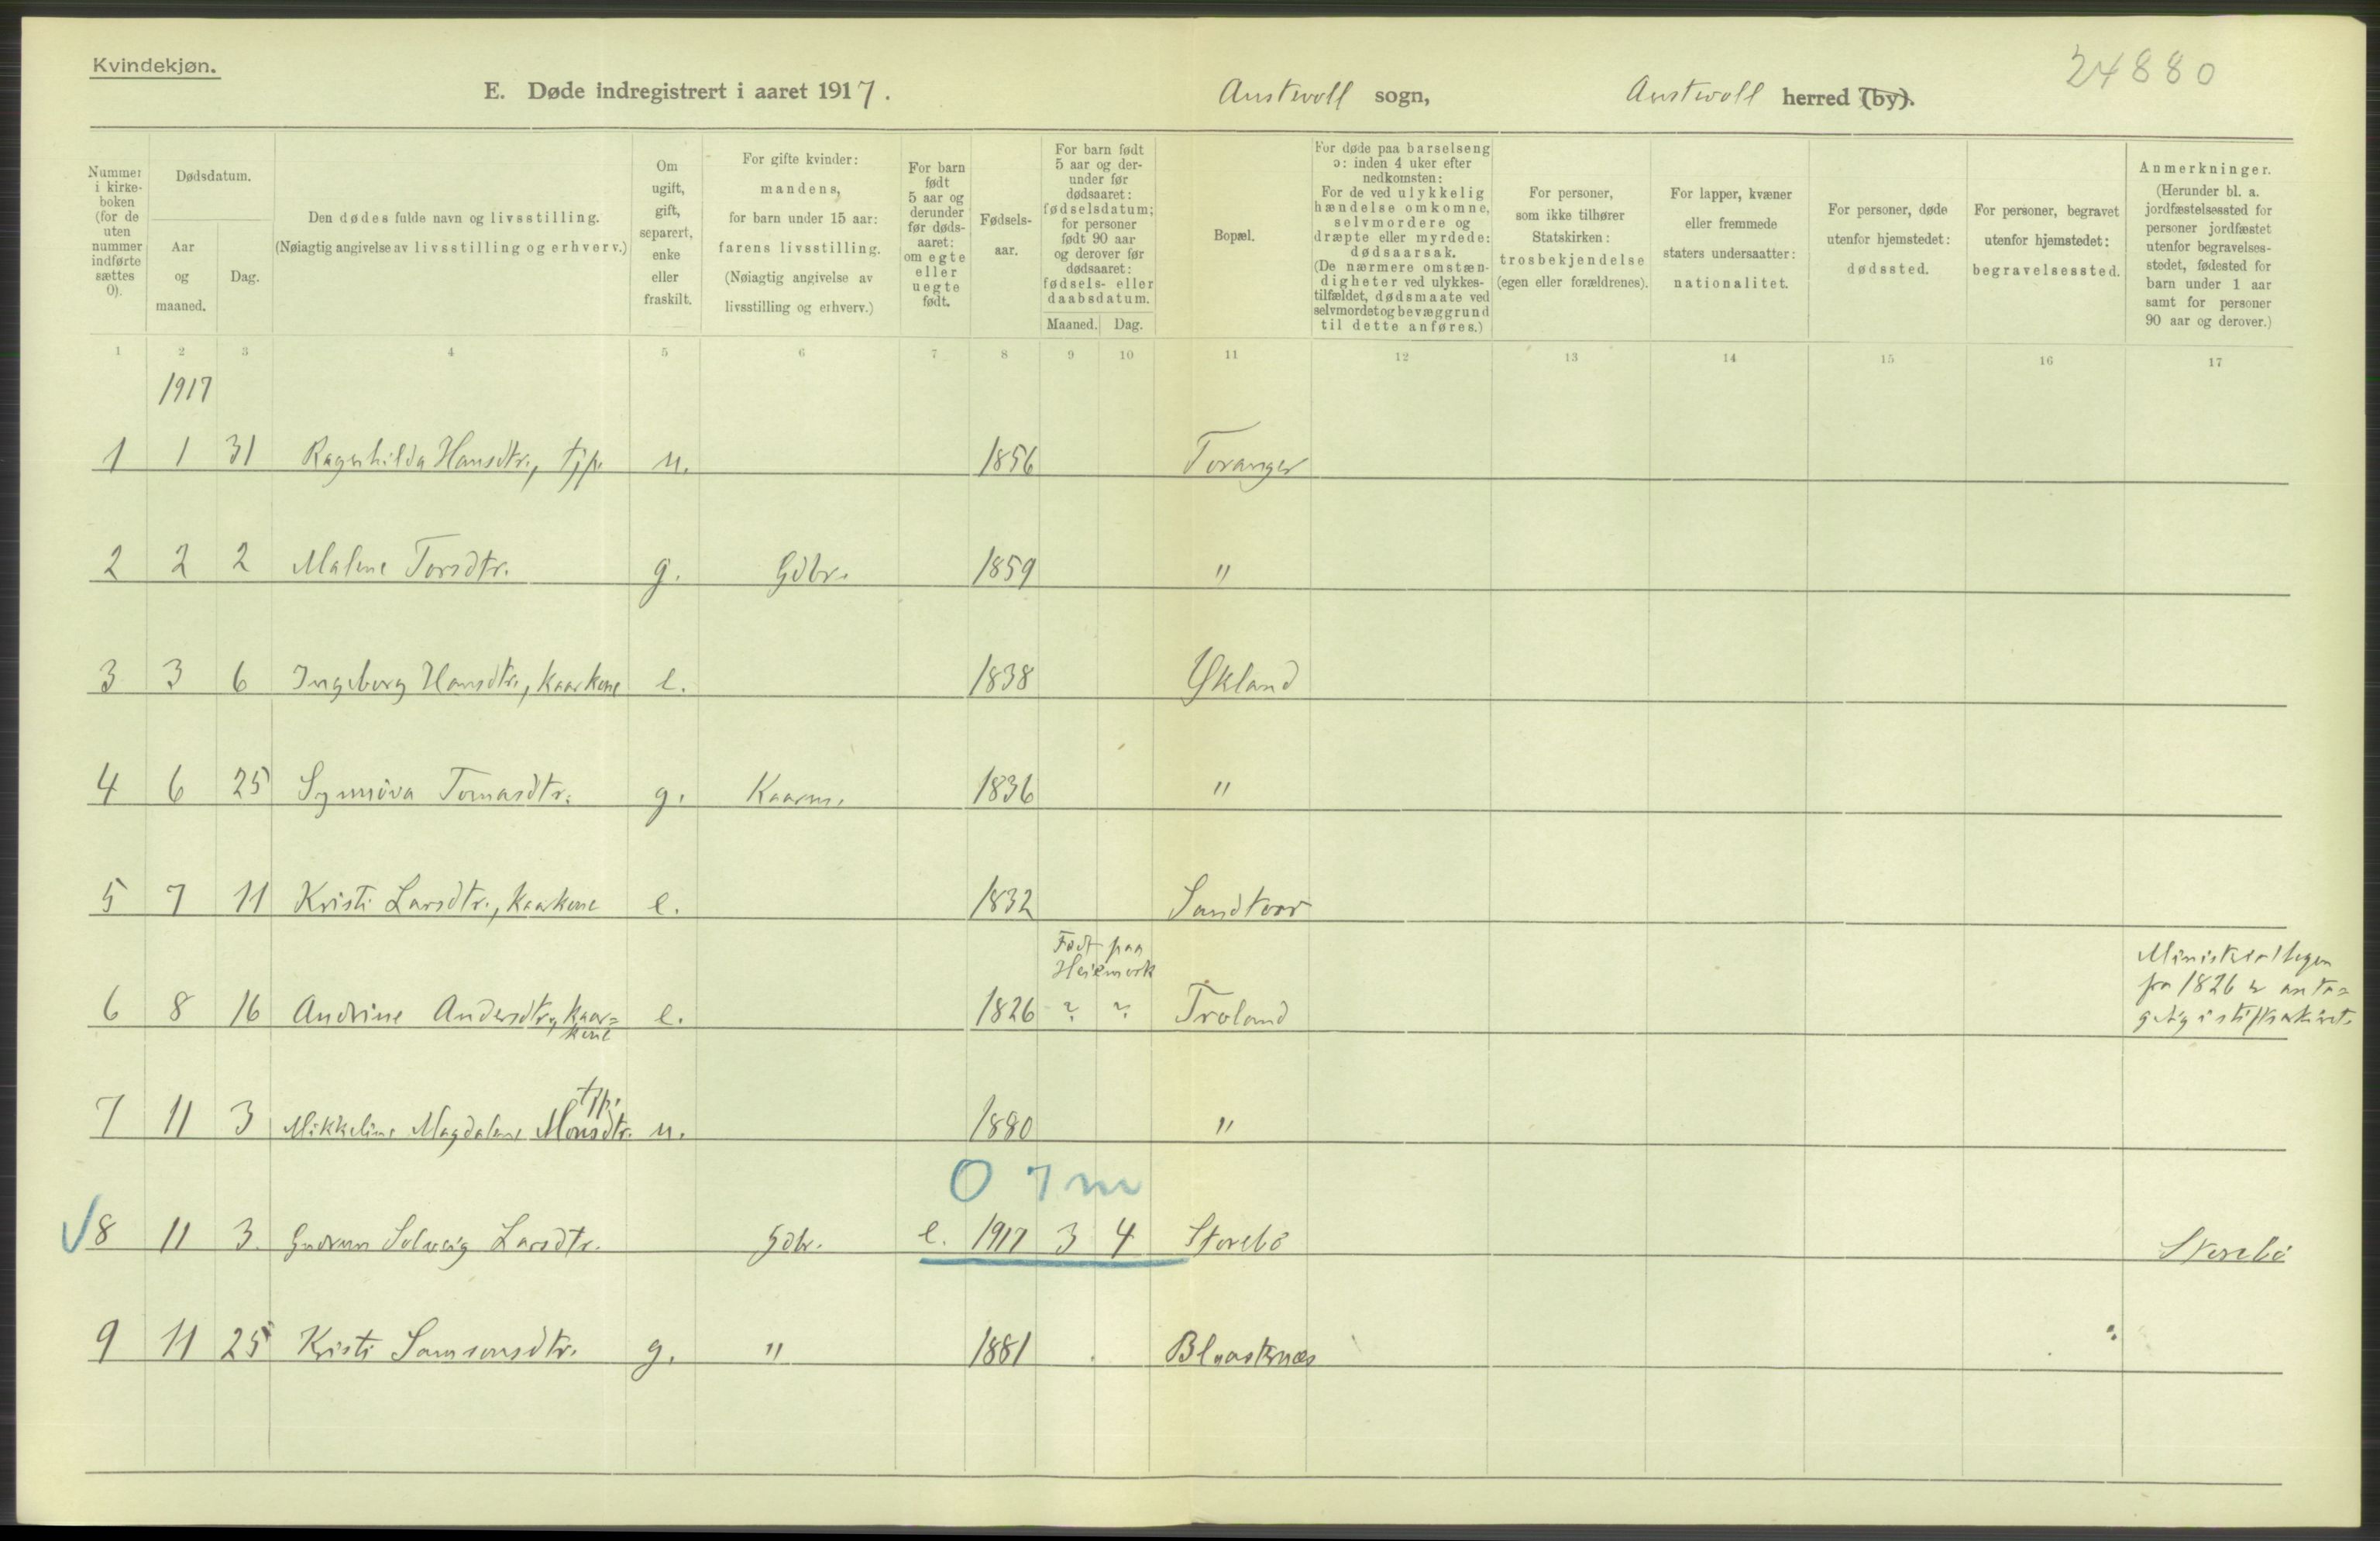 Kvindekjøn.
24880
E. Døde indregistrert i aaret 1917. Austevoll sogn, Austevoll herred (by).
Nummer i kirkeboken (for de uten nummer indførte sættes 0).
Dødsdatum.
Aar og maaned.
Dag.
Den dødes fulde navn og livsstilling.
(Nøiagtig angivelse av livsstilling og erhverv.)
Om ugift, gift, separert, enke eller fraskilt.
For gifte kvinder: mandens, for barn under 15 aar: farens livsstilling. (Nøiagtig angivelse av livsstilling og erhverv.)
For barn født 5 aar og derunder før dødsaaret: om egte eller uegte født.
Fødselsaar.
For barn født 5 aar og derunder før dødsaaret: fødselsdatum; for personer født 90 aar og derover før dødsaaret: fødsels- eller daabsdatum.
Maaned. Dag.
Bopæl.
For døde paa barselseng ɔ: inden 4 uker efter nedkomsten: For de ved ulykkelig hændelse omkomne, selvmordere og dræpte eller myrdede: dødsaarsak. (De nærmere omstændigheter ved ulykkestilfældet, dødsmaate ved selvmordet og bevæggrund til dette anføres.)
For personer, som ikke tilhører Statskirken: trosbekjendelse (egen eller forældrenes).
For lapper, kvæner eller fremmede staters undersaatter: nationalitet.
For personer, døde utenfor hjemstedet: dødssted.
For personer, begravet utenfor hjemstedet: begravelsessted.
Anmerkninger. (Herunder bl. a. jordfæstelsessted for personer jordfæstet utenfor begravelsesstedet, fødested for barn under 1 aar samt for personer 90 aar og derover.)
1 2 3 4 5 6 7 8 9 10 11 12 13 14 15 16 17
1917
1 1 31 Ragnhilda Hansdtr., tjp. u. 1856 Toranger
2 2 2 Malene Torsdtr. g. Gdbr. 1859 "
3 3 6 Ingeborg Hansdtr., kaarkone e. 1838 Økland
4 6 25 Synnöva Tomasdtr. g. Kaarm. 1836 "
5 7 11 Kristi Larsdtr., kaarkone e. 1832 Sandtorv
Født paa
Heiemork
Ministerialbogen
fra 1826 er anta=
6 8 16 Andrine Andersdtr., kaar= e. 1826 ? ? Troland gelig i stiftsarkivet.
kone
tjp.
7 11 3 Mikkeline Magdalene Monsdtr. u. 1880 "
0 7 m
8 11 3 Gudrun Solveig Larsdtr. Gdbr. e. 1917 3 4 Storebö Storebö
9 11 25 Kristi Samsonsdtr. g. " 1881 Blaasternes